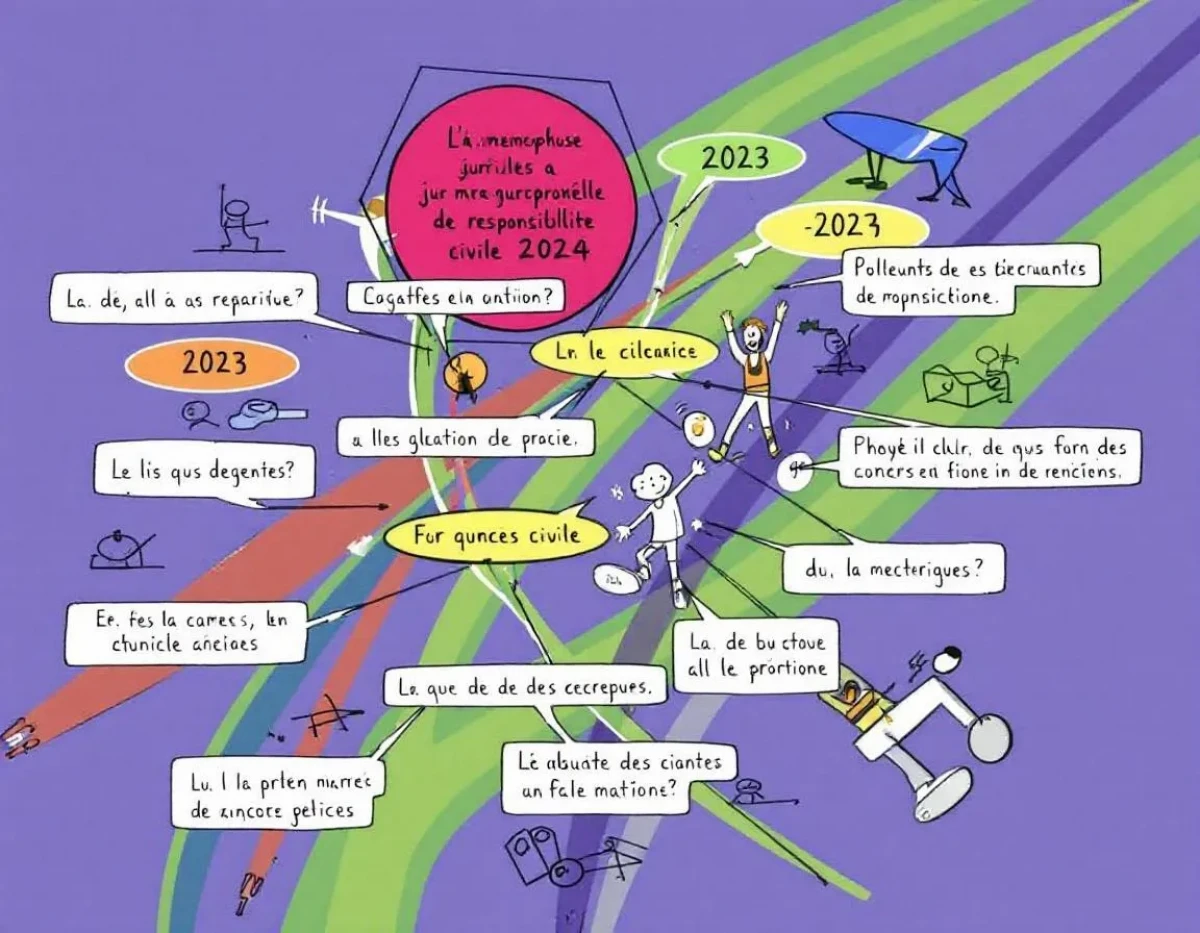 L'à.nemophose
jurrilles a
jur mra gurcpronélle
de responsibllite
civile 2024
2023
-2023
Polleunts de es tiecruantes
de mopnsictione.
La. de, all à as reparitue?
Cogatfes ela ontiion?
Lr. le cilcarice
2023
a lles glcation de pracie.
Phoyé il clulr, de qus forn des
concrs en fione in de renciens.
Le lis qus degentes?
For qunces civile
du, la mecterigues?
Ee. fes la carees, len
ctunicle anciaes
La. de bu ctoue
all le prortione
La que de de des cecrepues.
Lé abuate des ciantes
an fale matione?
Lu. I la prten marreć
de zincore pelices